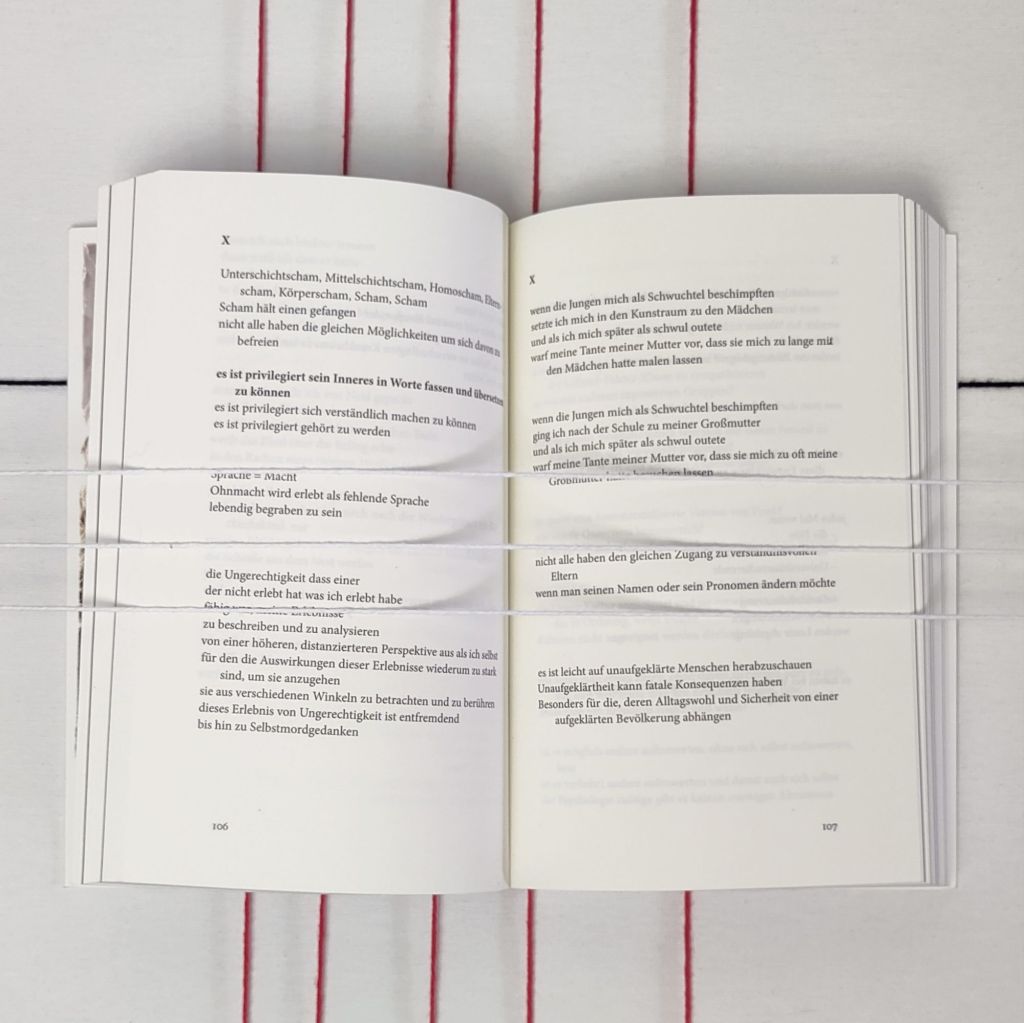 X
Unterschichtscham, Mittelschichtscham, Homoscham, Eltern-
scham, Körperscham, Scham, Scham
Scham hält einen gefangen
nicht alle haben die gleichen Möglichkeiten um sich davon zu
befreien
es ist privilegiert sein Inneres in Worte fassen und übersetzen
zu können
es ist privilegiert sich verständlich machen zu können
es ist privilegiert gehört zu werden
Sprache = Macht
Ohnmacht wird erlebt als fehlende Sprache
lebendig begraben zu sein
die Ungerechtigkeit dass einer
der nicht erlebt hat was ich erlebt habe
Erlebnisse
zu beschreiben und zu analysieren
von einer höheren, distanzierteren Perspektive aus als ich selbst
für den die Auswirkungen dieser Erlebnisse wiederum zu stark
sind, um sie anzugehen
sie aus verschiedenen Winkeln zu betrachten und zu berühren
dieses Erlebnis von Ungerechtigkeit ist entfremdend
bis hin zu Selbstmordgedanken
106
X
wenn die Jungen mich als Schwuchtel beschimpften
setzte ich mich in den Kunstraum zu den Mädchen
und als ich mich später als schwul outete
warf meine Tante meiner Mutter vor, dass sie mich zu lange mit
den Mädchen hatte malen lassen
wenn die Jungen mich als Schwuchtel beschimpften
ging ich nach der Schule zu meiner Großmutter
und als ich mich später als schwul outete
warf meine Tante meiner Mutter vor, dass sie mich zu oft meine
Großmutter hatte besuchen lassen
nicht alle haben den gleichen Zugang zu verständnisvollen
Eltern
wenn man seinen Namen oder sein Pronomen ändern möchte
es ist leicht auf unaufgeklärte Menschen herabzuschauen
Unaufgeklärtheit kann fatale Konsequenzen haben
Besonders für die, deren Alltagswohl und Sicherheit von einer
aufgeklärten Bevölkerung abhängen
107